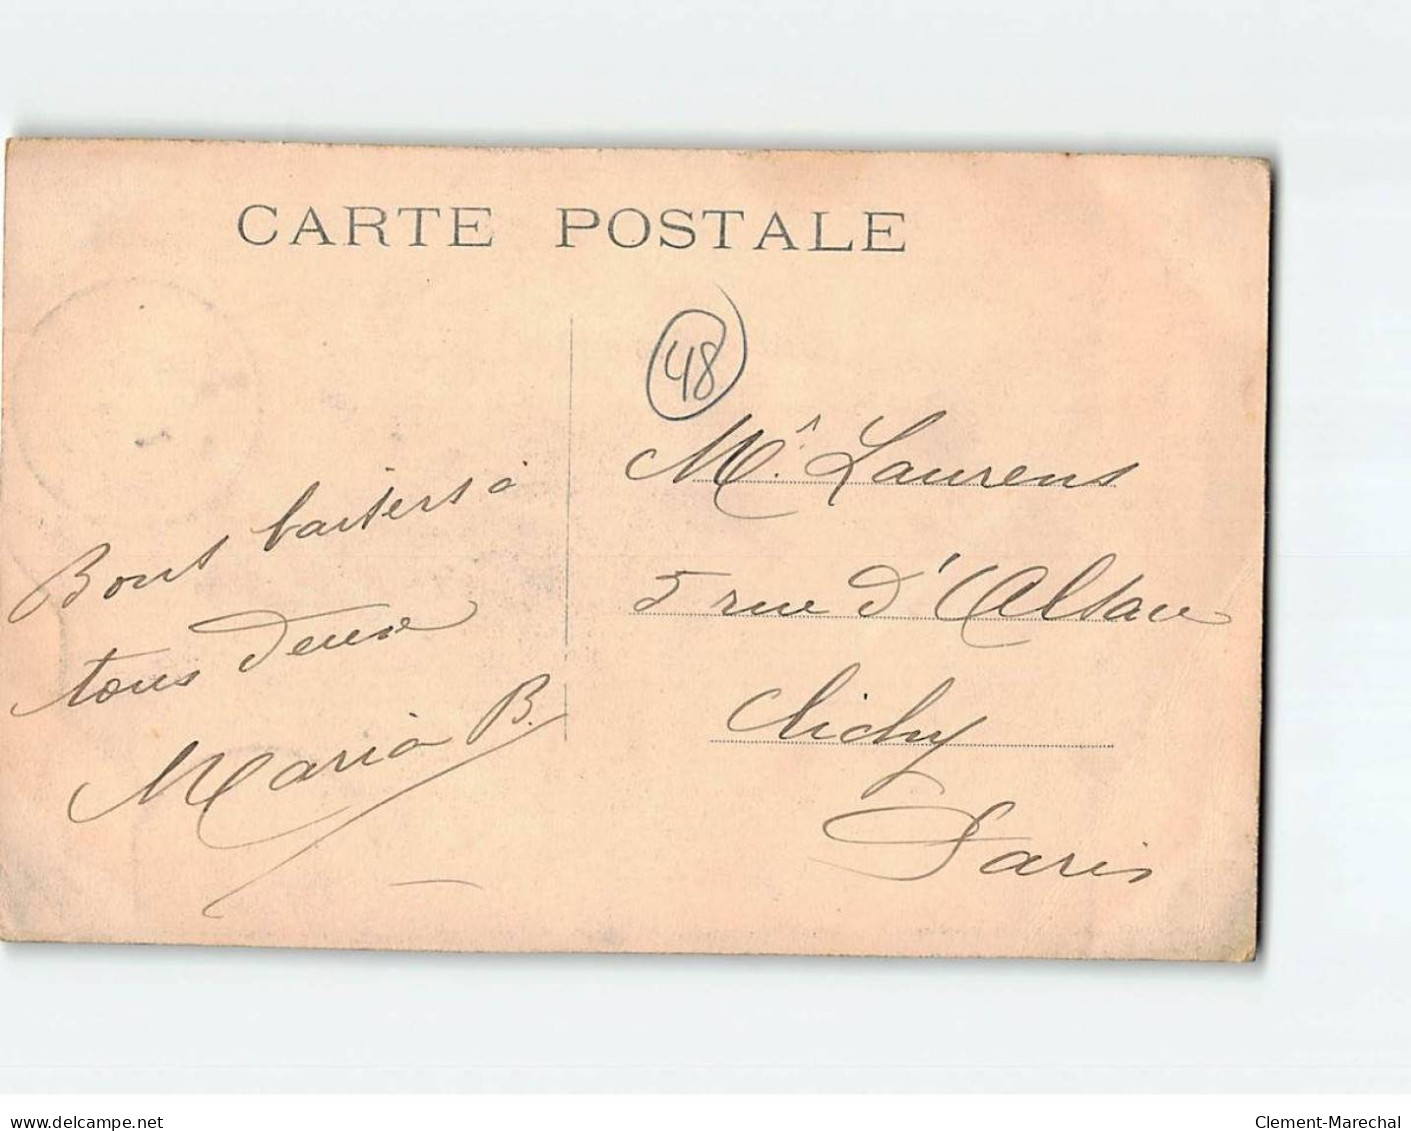 CARTE POSTALE
48
Bons baisers à
tous deux
Maria B.
Mr. Laurens
5 rue d'Alsace
Clichy
Paris
www.delcampe.net
Clement-Marechal